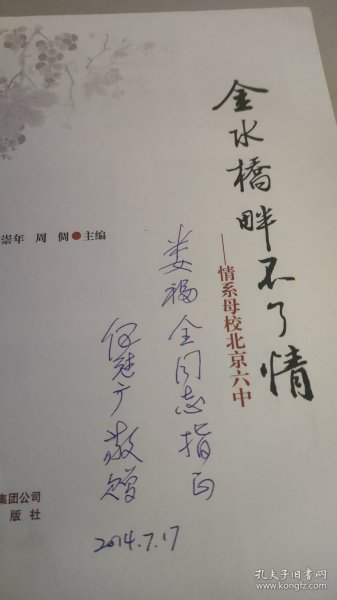 金水橋畔不了情
——情系母校北京六中
崇年 周倜●主编
娄福全同志指正
敬赠
2014.7.17
集团公司
版社
孔夫子旧书网
www.kongfz.com